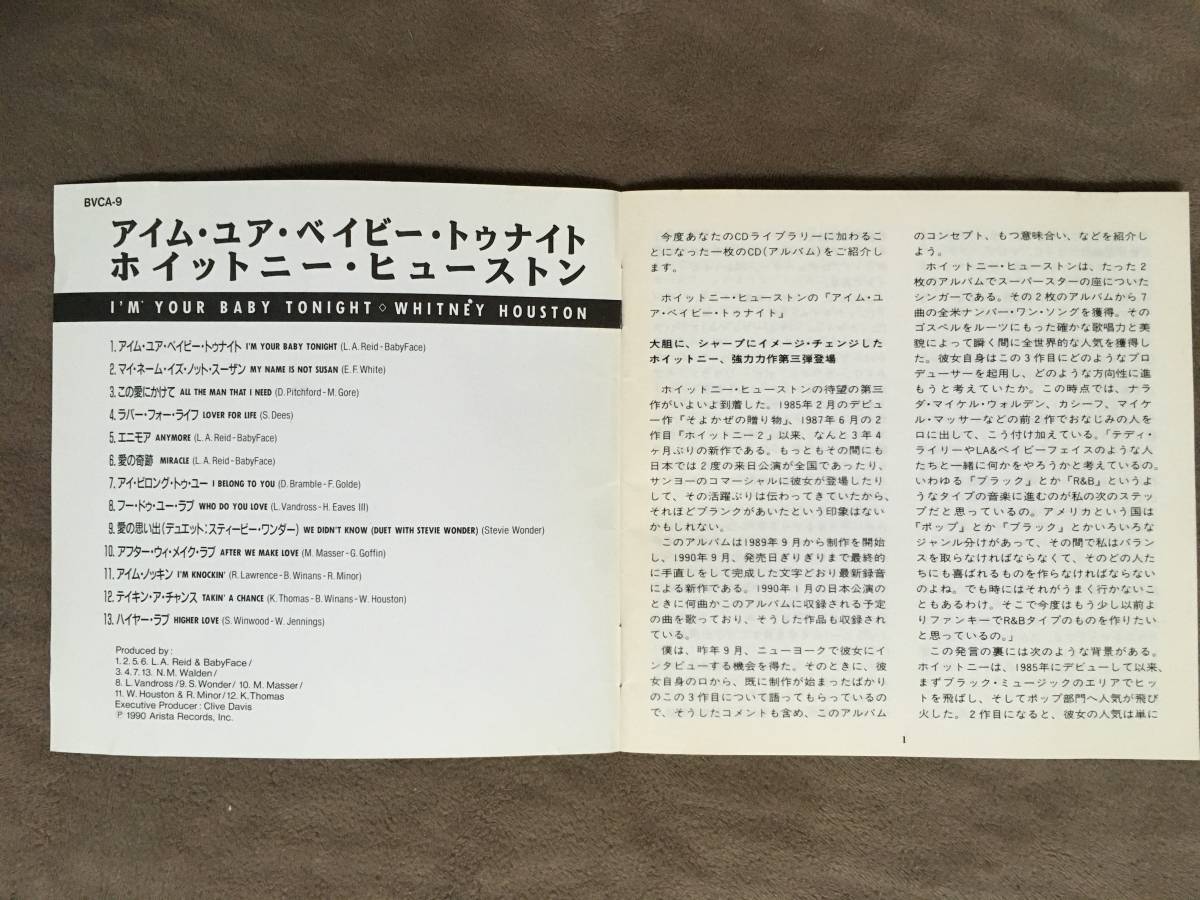 BVCA-9
アイム・ユア・ベイビー・トゥナイト
ホイットニー・ヒューストン
I'M YOUR BABY TONIGHT ◇ WHITNEY HOUSTON
1. アイム・ユア・ベイビー・トゥナイト I'M YOUR BABY TONIGHT (L. A. Reid-BabyFace)
2. マイ・ネーム・イズ・ノット・スーザン MY NAME IS NOT SUSAN (E. F. White)
3. この愛にかけて ALL THE MAN THAT I NEED (D. Pitchford-M. Gore)
4. ラバー・フォー・ライフ LOVER FOR LIFE (S. Dees)
5. エニモア ANYMORE (L. A. Reid-BabyFace)
6. 愛の奇跡 MIRACLE (L. A. Reid-BabyFace)
7. アイ・ビロング・トゥ・ユー I BELONG TO YOU (D. Bramble-F. Golde)
8. フー・ドゥ・ユー・ラブ WHO DO YOU LOVE (L. Vandross-H. Eaves III)
9. 愛の思い出(デュエット:スティービー・ワンダー) WE DIDN'T KNOW (DUET WITH STEVIE WONDER) (Stevie Wonder)
10. アフター・ウィ・メイク・ラブ AFTER WE MAKE LOVE (M. Masser-G. Goffin)
11. アイム・ノッキン I'M KNOCKIN' (R. Lawrence-B. Winans-R. Minor)
12. テイキン・ア・チャンス TAKIN' A CHANCE (K. Thomas-B. Winans-W. Houston)
13. ハイヤー・ラブ HIGHER LOVE (S. Winwood-W. Jennings)
Produced by :
1. 2. 5. 6. L. A. Reid & BabyFace /
3. 4. 7. 13. N. M. Walden /
8. L. Vandross / 9. S. Wonder / 10. M. Masser /
11. W. Houston & R. Minor / 12. K. Thomas
Executive Producer : Clive Davis
℗ 1990 Arista Records, Inc.
今度あなたのCDライブラリーに加わるこ
とになった一枚のCD(アルバム)をご紹介し
ます。
ホイットニー・ヒューストンの「アイム・ユ
ア・ベイビー・トゥナイト」
大胆に、シャープにイメージ・チェンジした
ホイットニー、強力力作第三弾登場
ホイットニー・ヒューストンの待望の第三
作がいよいよ到着した。1985年2月のデビュ
ー作『そよかぜの贈り物』、1987年6月の2
作目『ホイットニー2』以来、なんと3年4
ヶ月ぶりの新作である。もっともその間にも
日本では2度の来日公演が全国であったり、
サンヨーのコマーシャルに彼女が登場したり
して、その活躍ぶりは伝わってきていたから、
それほどブランクがあいたという印象はない
かもしれない。
このアルバムは1989年9月から制作を開始
し、1990年9月、発売日ぎりぎりまで最終的
に手直しをして完成した文字どおり最新録音
による新作である。1990年1月の日本公演の
ときに何曲かこのアルバムに収録される予定
の曲を歌っており、そうした作品も収録され
ている。
僕は、昨年9月、ニューヨークで彼女にイ
ンタビューする機会を得た。そのときに、彼
女自身の口から、既に制作が始まったばかり
のこの3作目について語ってもらっているの
で、そうしたコメントも含め、このアルバム
のコンセプト、もつ意味合い、などを紹介し
よう。
ホイットニー・ヒューストンは、たった2
枚のアルバムでスーパースターの座についた
シンガーである。その2枚のアルバムから7
曲の全米ナンバー・ワン・ソングを獲得。その
ゴスペルをルーツにもった確かな歌唱力と美
貌によって瞬く間に全世界的な人気を獲得し
た。彼女自身はこの3作目にどのようなプロ
デューサーを起用し、どのような方向性に進
もうと考えていたか。この時点では、ナラ
ダ・マイケル・ウォルデン、カシーフ、マイケ
ル・マッサーなどの前2作でおなじみの人を
口に出して、こう付け加えている。「テディ・
ライリーやLA&ベイビーフェイスのような人
たちと一緒に何かをやろうかと考えているの。
いわゆる『ブラック』とか『R&B』というよ
うなタイプの音楽に進むのが私の次のステッ
プだと思っているの。アメリカという国は
『ポップ』とか『ブラック』とかいろいろな
ジャンル分けがあって、その間で私はバラン
スを取らなければならなくて、そのどの人た
ちにも喜ばれるものを作らなければならない
のよね。でも時にはそれがうまく行かないこ
ともあるわけ。そこで今度はもう少し以前よ
りファンキーでR&Bタイプのものを作りたい
と思っているの。」
この発言の裏には次のような背景がある。
ホイットニーは、1985年にデビューして以来、
まずブラック・ミュージックのエリアでヒッ
トを飛ばし、そしてポップ部門へ人気が飛び
火した。2作目になると、彼女の人気は単に
1